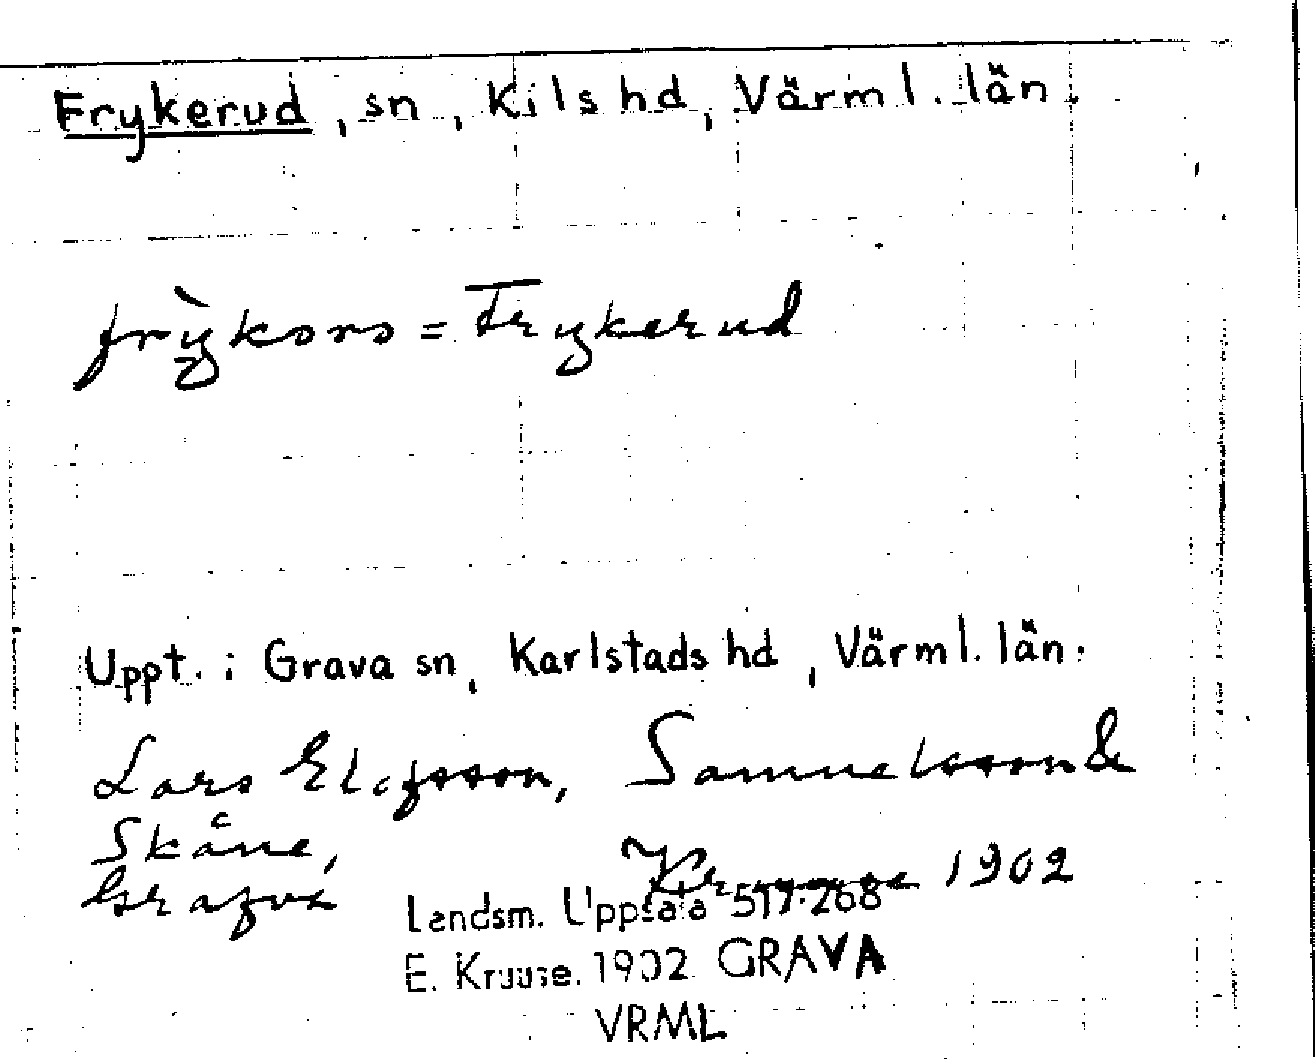 Frykerud, sn, Kils hd, Värml. län.
frỳkoro = Frykerud
Uppt. i Grava sn, Karlstads hd, Värml. län.
Lars Elofsson, Samuelsson &
Skåne, Kruuse 1902
Grafva
Landsm. Uppsala 517:268
E. Kruuse. 1902 GRAVA
VRML